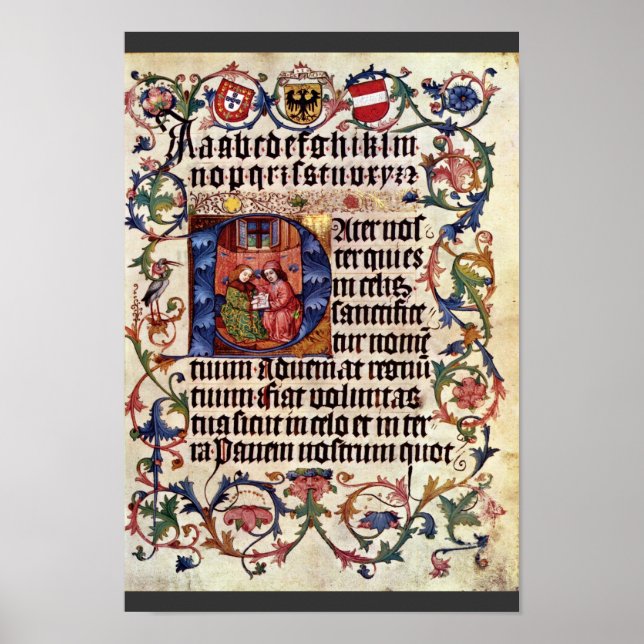 Aabcdefghiklm
nopqrſstuvxyz
Pater nos
ter qui es
in celis
sanctifice
tur nomē
tuum Adueniat regnū
tuum Fiat voluntas
tua sicut in celo et in ter
ra Panem nostrum quot